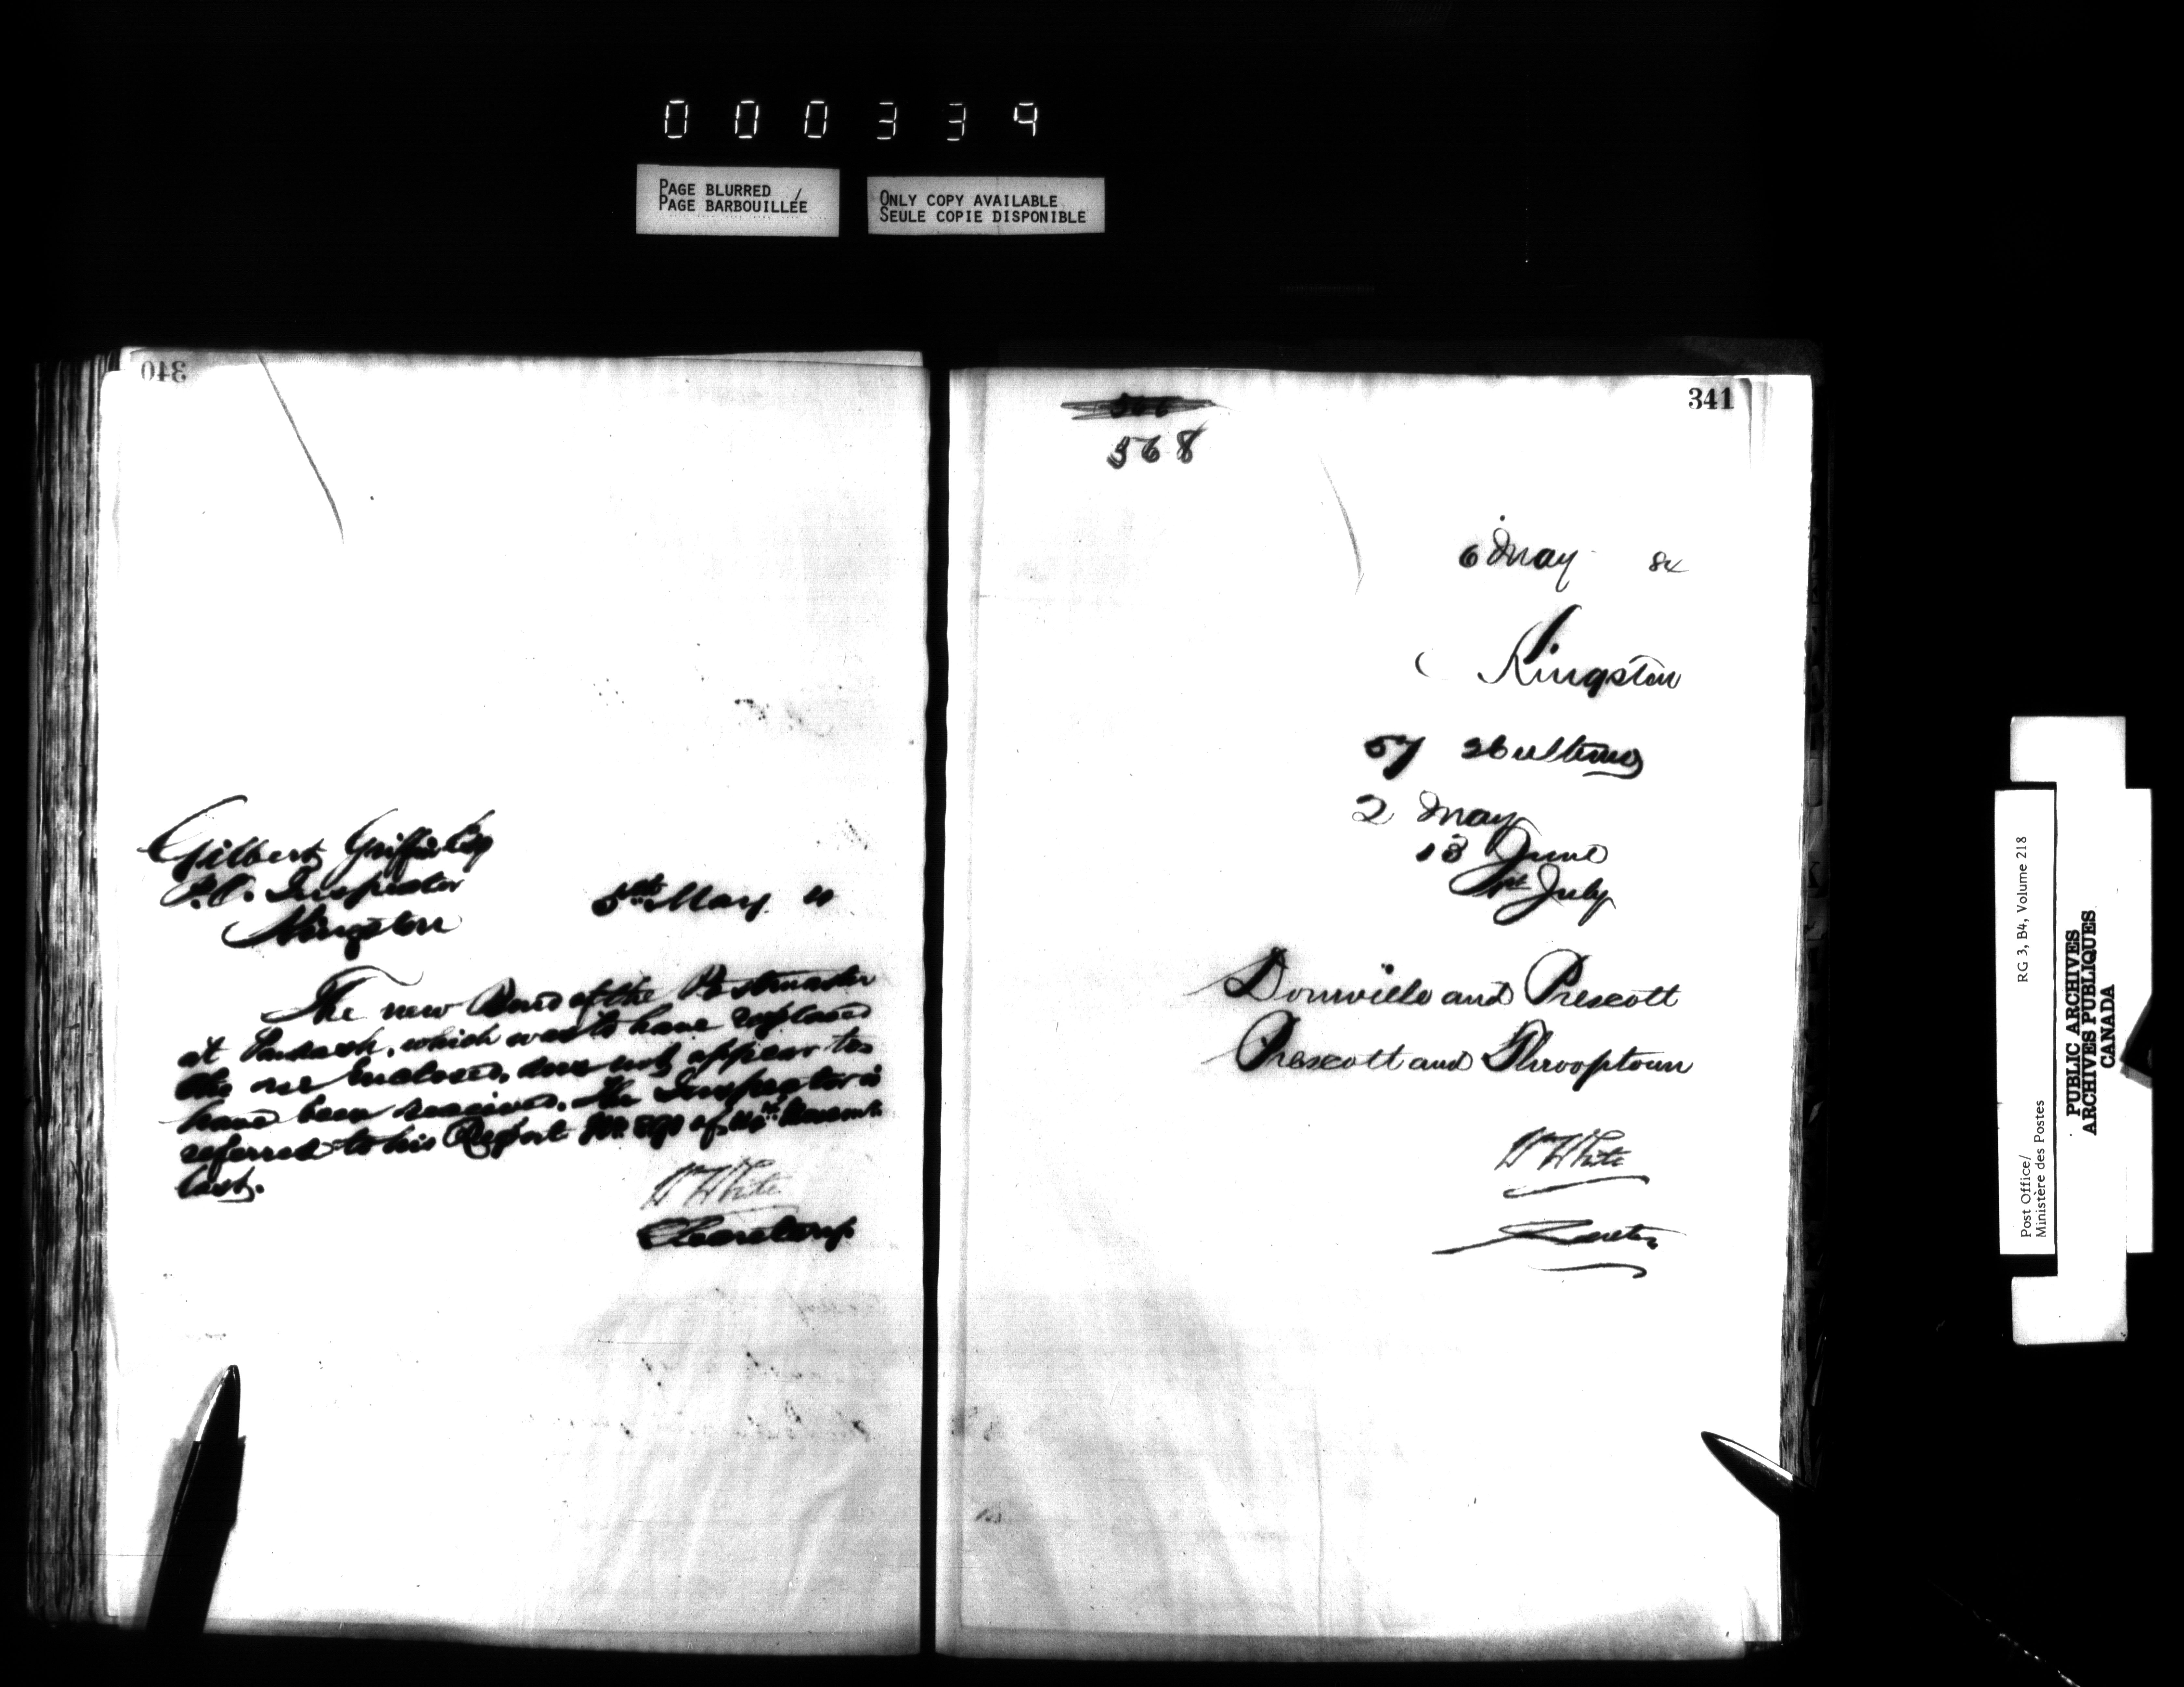 000339
PAGE BLURRED
PAGE BARBOUILLÉE
ONLY COPY AVAILABLE
SEULE COPIE DISPONIBLE
340
Gilbert Griffin Esq
P.O. Inspector
Kingston
5th May
The new Bond of the Postmaster
at which was to have replaced
the one enclosed, does not appear to
have been received. The Inspector is
referred to his Report No. of
last.
W White
Secretary.
341
568
6 May 84
Kingston
57 26 ultimo
2 May
13 June
1st July
Domville and Prescott
Prescott and Throoptown
W White
Post Office/
Ministère des Postes
RG 3, B4, Volume 218
PUBLIC ARCHIVES
ARCHIVES PUBLIQUES
CANADA